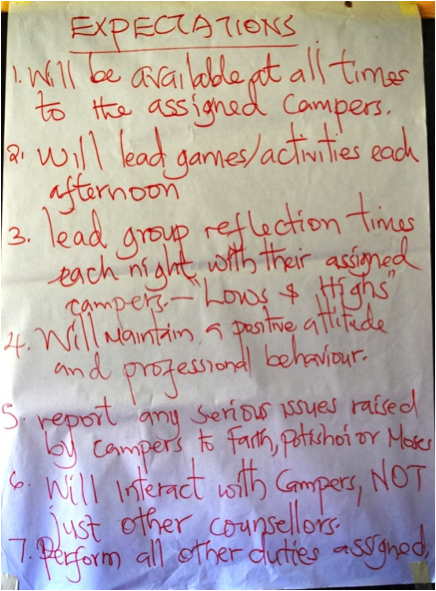 EXPECTATIONS
1. Will be available at all times
to the assigned Campers.
2. Will lead games/activities each
afternoon
3. lead group reflection times
each night, with their assigned
campers. - "Lows & Highs"
4. Will Maintain a positive attitude
and professional behaviour.
5. report any serious issues raised
by campers to Faith, or Moses
6. Will Interact with Campers, NOT
just other counsellors.
7. Perform all other duties assigned.